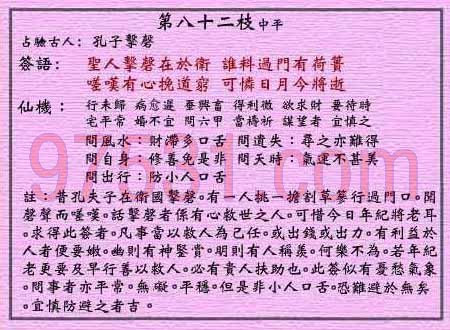 第八十二枝 中平
占驗古人：孔子擊磬
簽語： 聖人擊磬在於衛 誰料過門有荷蕢
嗟嘆有心挽道窮 可憐日月今將逝
仙機： 行未歸 病愈遲 蚕興畜 得利微 欲求財 要待時
宅平常 婚不宜 問六甲 當禱祈 謀望者 宜慎之
問風水：財滯多口舌 問遺失：尋之亦難得
問自身：修善免是非 問天時：氣運不甚美
問出行：防小人口舌
註：昔孔夫子在衛國擊磬。有一人挑一擔割草蔘行過門口。聞
磬聲而嗟嘆。話擊磬者係有心救世之人。可惜今日年紀將老耳
。求得此簽者。凡事當以救人為己任。或出錢或出力。有利益於
人者便要嫩。幽則有神鑒賞。明則有人稱羨。何樂不為。若年紀
老更要及早行善以救人。必有貴人扶助也。此簽似有憂愁氣象
。問事者亦平常。無礙。平穩。但是非小人口舌。恐難避於無矣
。宜慎防避之者吉。